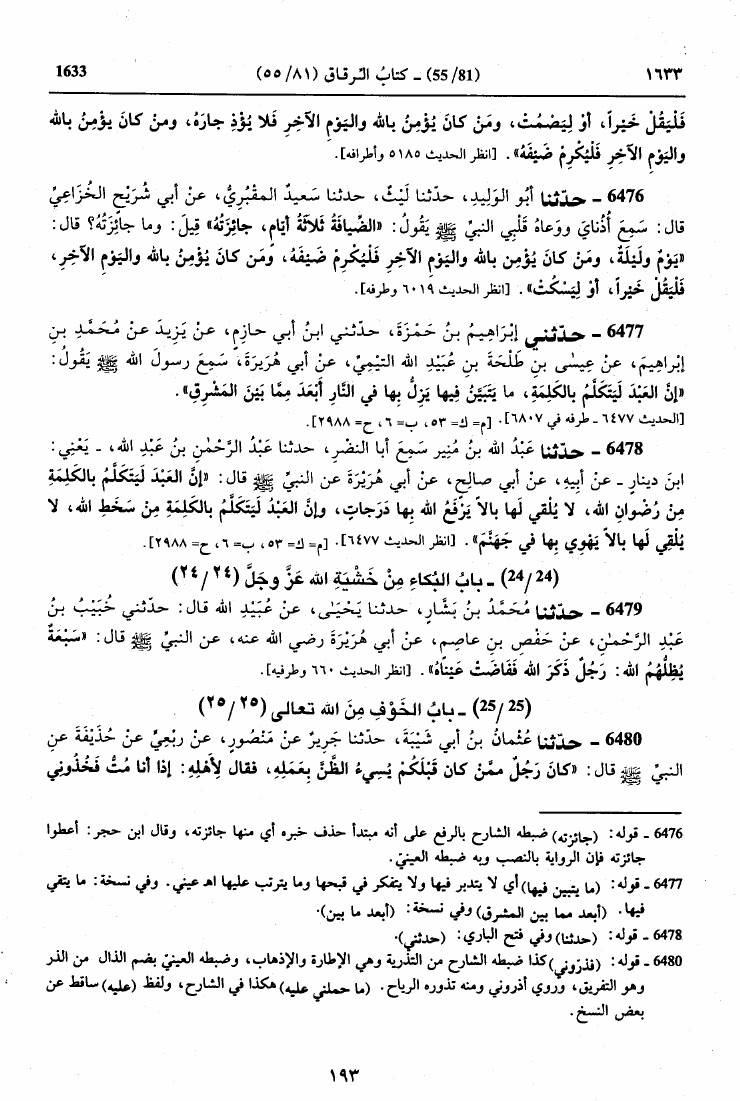 ١٦٣٣ (55/81) ـ كتابُ الـرقاق (٥٥/٨١) 1633
فَلْيَقُلْ خَيْراً، أوْ لِيَصْمُتْ، ومَنْ كانَ يُؤْمِنُ بالله واليَوْمِ الآخِرِ فَلا يُؤْذِ جارَهُ، ومن كانَ يؤْمِنُ بالله
واليَومِ الآخِرِ فَلْيُكْرِمْ ضَيْفَهُ». [انظر الحديث ٥١٨٥ وأطرافه].
6476 ـ حدّثنا أبُو الوَلِيدِ، حدّثنا لَيْثٌ، حدثنا سَعيدٌ المَقْبُرِيُّ، عنْ أبي شُرَيْحٍ الخُزَاعِيِّ
قال: سَمِعَ أُذُنايَ ووَعاهُ قَلْبِي النبيَّ ﷺ يَقُولُ: «الضِّيافَةُ ثَلاثَةُ أيَّامٍ، جائِزَتُهُ» قِيلَ: وما جائِزَتُهُ؟ قال:
«يَوْمٌ ولَيلَةٌ، ومَنْ كانَ يُؤْمِن بالله واليَوْمِ الآخِرِ فَلْيُكْرِمْ ضَيفَهُ، ومَن كانَ يُؤْمِنُ بالله واليَوْمِ الآخِرِ،
فَلْيَقُلْ خَيراً، أوْ لِيَسْكُتْ». [انظر الحديث ٦٠١٩ وطرفه].
6477 ـ حدّثني إبْرَاهِيمُ بنُ حَمْزَةَ، حدّثني ابنُ أبي حازِمٍ، عنْ يَزِيدَ عنْ مُحَمَّدِ بنِ
إبْراهِيمَ، عنْ عِيسٰى بنِ طَلْحَةَ بنِ عُبَيْدِ الله التَّيْمِيِّ، عنْ أبي هُرَيرَةَ، سَمِعَ رسولَ الله ﷺ يَقُولُ:
«إنَّ العَبْدَ لَيَتَكَلَّمُ بالكَلِمَةِ، ما يَتَبَيَّنُ فِيها يَزِلُّ بِها في النَّارِ أبْعَدَ مِمَّا بَيْنَ المَشْرِقِ».
[الحديث ٦٤٧٧ ـ طرفه في ٦٨٠٧]. [م= ك= ٥٣، ب= ٦، ح= ٢٩٨٨].
6478 ـ حدّثنا عَبْدُ الله بنُ مُنِيرٍ سَمِعَ أبا النضْرِ، حدثنا عَبْدُ الرَّحْمٰنِ بنُ عَبْدِ الله، ـ يَعْنِي:
ابنَ دينارٍ ـ عنْ أبِيهِ، عنْ أبي صالِحٍ، عنْ أبي هُرَيْرَةَ عن النبيِّ ﷺ قال: «إنَّ العَبْدَ لَيَتَكَلَّمُ بالكَلِمَةِ
مِنْ رُضْوانِ الله، لا يُلْقي لَها بالاً يَرْفَعُ الله بِها دَرَجاتٍ، وإنَّ العَبْدَ لَيَتَكَلَّمُ بالكَلِمَةِ مِنْ سَخَطِ الله، لا
يُلْقِي لَها بالاً يَهْوِي بِها في جَهَنَّمَ». [انظر الحديث ٦٤٧٧]. [م= ك= ٥٣، ب= ٦، ح= ٢٩٨٨].
(24/24) ـ بابُ البُكاءِ مِنْ خَشْيَةِ الله عَزَّ وجَلَّ (٢٤/٢٤)
6479 ـ حدّثنا مُحَمَّدُ بنُ بَشَّارٍ، حدثنا يَحْيَىٰ، عنْ عُبَيْدِ الله قال: حدّثني خُبَيْبُ بنُ
عَبْدِ الرَّحْمٰنِ، عنْ حَفْصِ بنِ عاصِمٍ، عنْ أبي هُرَيْرَةَ رضي الله عنه، عن النبيِّ ﷺ قال: «سَبْعَةٌ
يُظِلُّهُمُ الله: رَجُلٌ ذَكَرَ الله فَفَاضَتْ عَيْناهُ». [انظر الحديث ٦٦٠ وطرفيه].
(25/25) ـ بابُ الخَوْفِ مِنَ الله تعالى (٢٥/٢٥)
6480 ـ حدّثنا عُثْمانُ بنُ أبي شَيْبَةَ، حدّثنا جَرِيرٌ عنْ مَنْصُورٍ، عنْ رِبْعِيٍّ عنْ حُذَيْفَةَ عن
النبيِّ ﷺ قال: «كانَ رَجُلٌ ممَّنْ كان قَبْلَكُمْ يُسِيءُ الظَّنَّ بِعَمَلِهِ، فقال لأهْلِهِ: إذا أنا مُتُّ فَخُذُوني
6476 ـ قوله: (جائزته) ضبطه الشارح بالرفع على أنه مبتدأ حذف خبره أي منها جائزته، وقال ابن حجر: أعطوا
جائزته فإن الرواية بالنصب وبه ضبطه العينيّ.
6477 ـ قوله: (ما يتبين فيها) أي لا يتدبر فيها ولا يتفكر في قبحها وما يترتب عليها اهـ عيني. وفي نسخة: ما يتقي
فيها. (أبعد مما بين المشرق) وفي نسخة: (أبعد ما بين).
6478 ـ قوله: (حدثنا) وفي فتح الباري: (حدثني).
6480 ـ قوله: (فذرّوني) كذا ضبطه الشارح من التذرية وهي الإطارة والإذهاب، وضبطه العينيّ بضم الذال من الذر
وهو التفريق، وروي أذروني ومنه تذوره الرياح. (ما حملني عليه) هكذا في الشارح، ولفظ (عليه) ساقط عن
بعض النسخ.
١٩٣